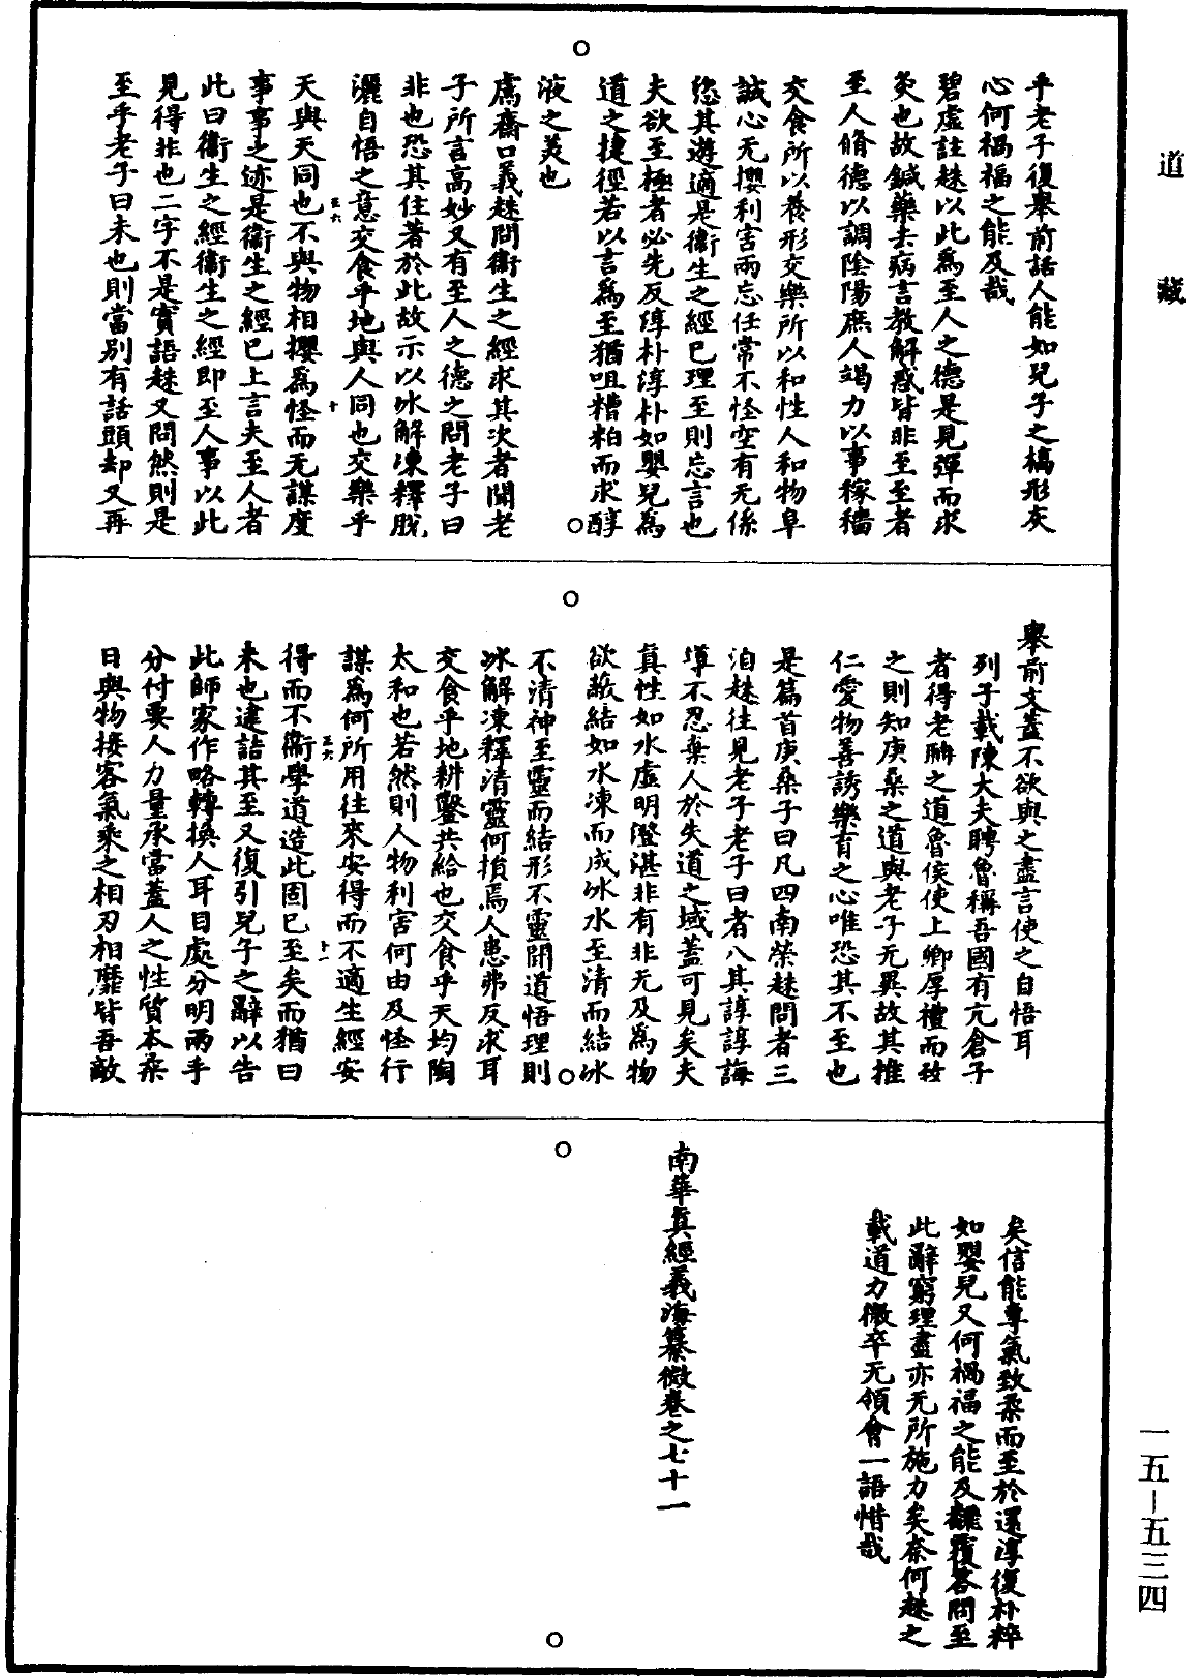 道藏
乎老子復舉前話人能如兒子之槁形灰
心何禍福之能及哉
碧虛註趎以此為至人之德是見彈而求
炙也故鍼藥去病言教解惑皆非至至者
至人脩德以調陰陽庶人竭力以事稼穡
交食所以養形交樂所以和性人和物阜
誠心无攖利害兩忘任常不怪空有无係
恣其遊適是衞生之經已理至則忘言也
夫欲至極者必先反淳朴淳朴如嬰兒為
道之捷徑若以言為至猶咀糟粕而求醇
液之美也
鬳齋口義趎問衞生之經求其次者聞老
子所言高妙又有至人之德之問老子曰
非也恐其住著於此故示以冰解凍釋脫
灑自悟之意交食乎地與人同也交樂乎
天與天同也不與物相攖為怪而无謀度
事事之迹是衞生之經已上言夫至人者
此曰衞生之經衞生之經即至人事以此
見得非也二字不是實語趎又問然則是
至乎老子曰未也則當別有話頭却又再
舉前文蓋不欲與之盡言使之自悟耳
列子載陳大夫聘魯稱吾國有亢倉子
者得老聃之道魯侯使上卿厚禮而致
之則知庚桑之道與老子无異故其推
仁愛物善誘樂育之心唯恐其不至也
是篇首庚桑子曰凡四南榮趎問者三
洎趎往見老子老子曰者八其諄諄誨
導不忍棄人於失道之域蓋可見矣夫
真性如水虛明澄湛非有非无及為物
欲敵結如水凍而成冰水至清而結冰
不清神至靈而結形不靈聞道悟理則
冰解凍釋清靈何損焉人患弗反求耳
交食乎地耕鑿共給也交食乎天均陶
太和也若然則人物利害何由及怪行
謀為何所用往來安得而不適生經安
得而不衞學道造此固已至矣而猶曰
未也逮詰其至又復引兒子之辭以告
此師家作略轉換人耳目處分明兩手
分付要人力量承當蓋人之性質本柔
日與物接客氣乘之相刃相靡皆吾敵
矣信能專氣致柔而至於還淳復朴粹
如嬰兒又何禍福之能及覼覆答問至
此辭窮理盡亦无所施力矣奈何趎之
載道力微卒无領會一語惜哉
南華真經義海纂微卷之七十一
一五—五三四